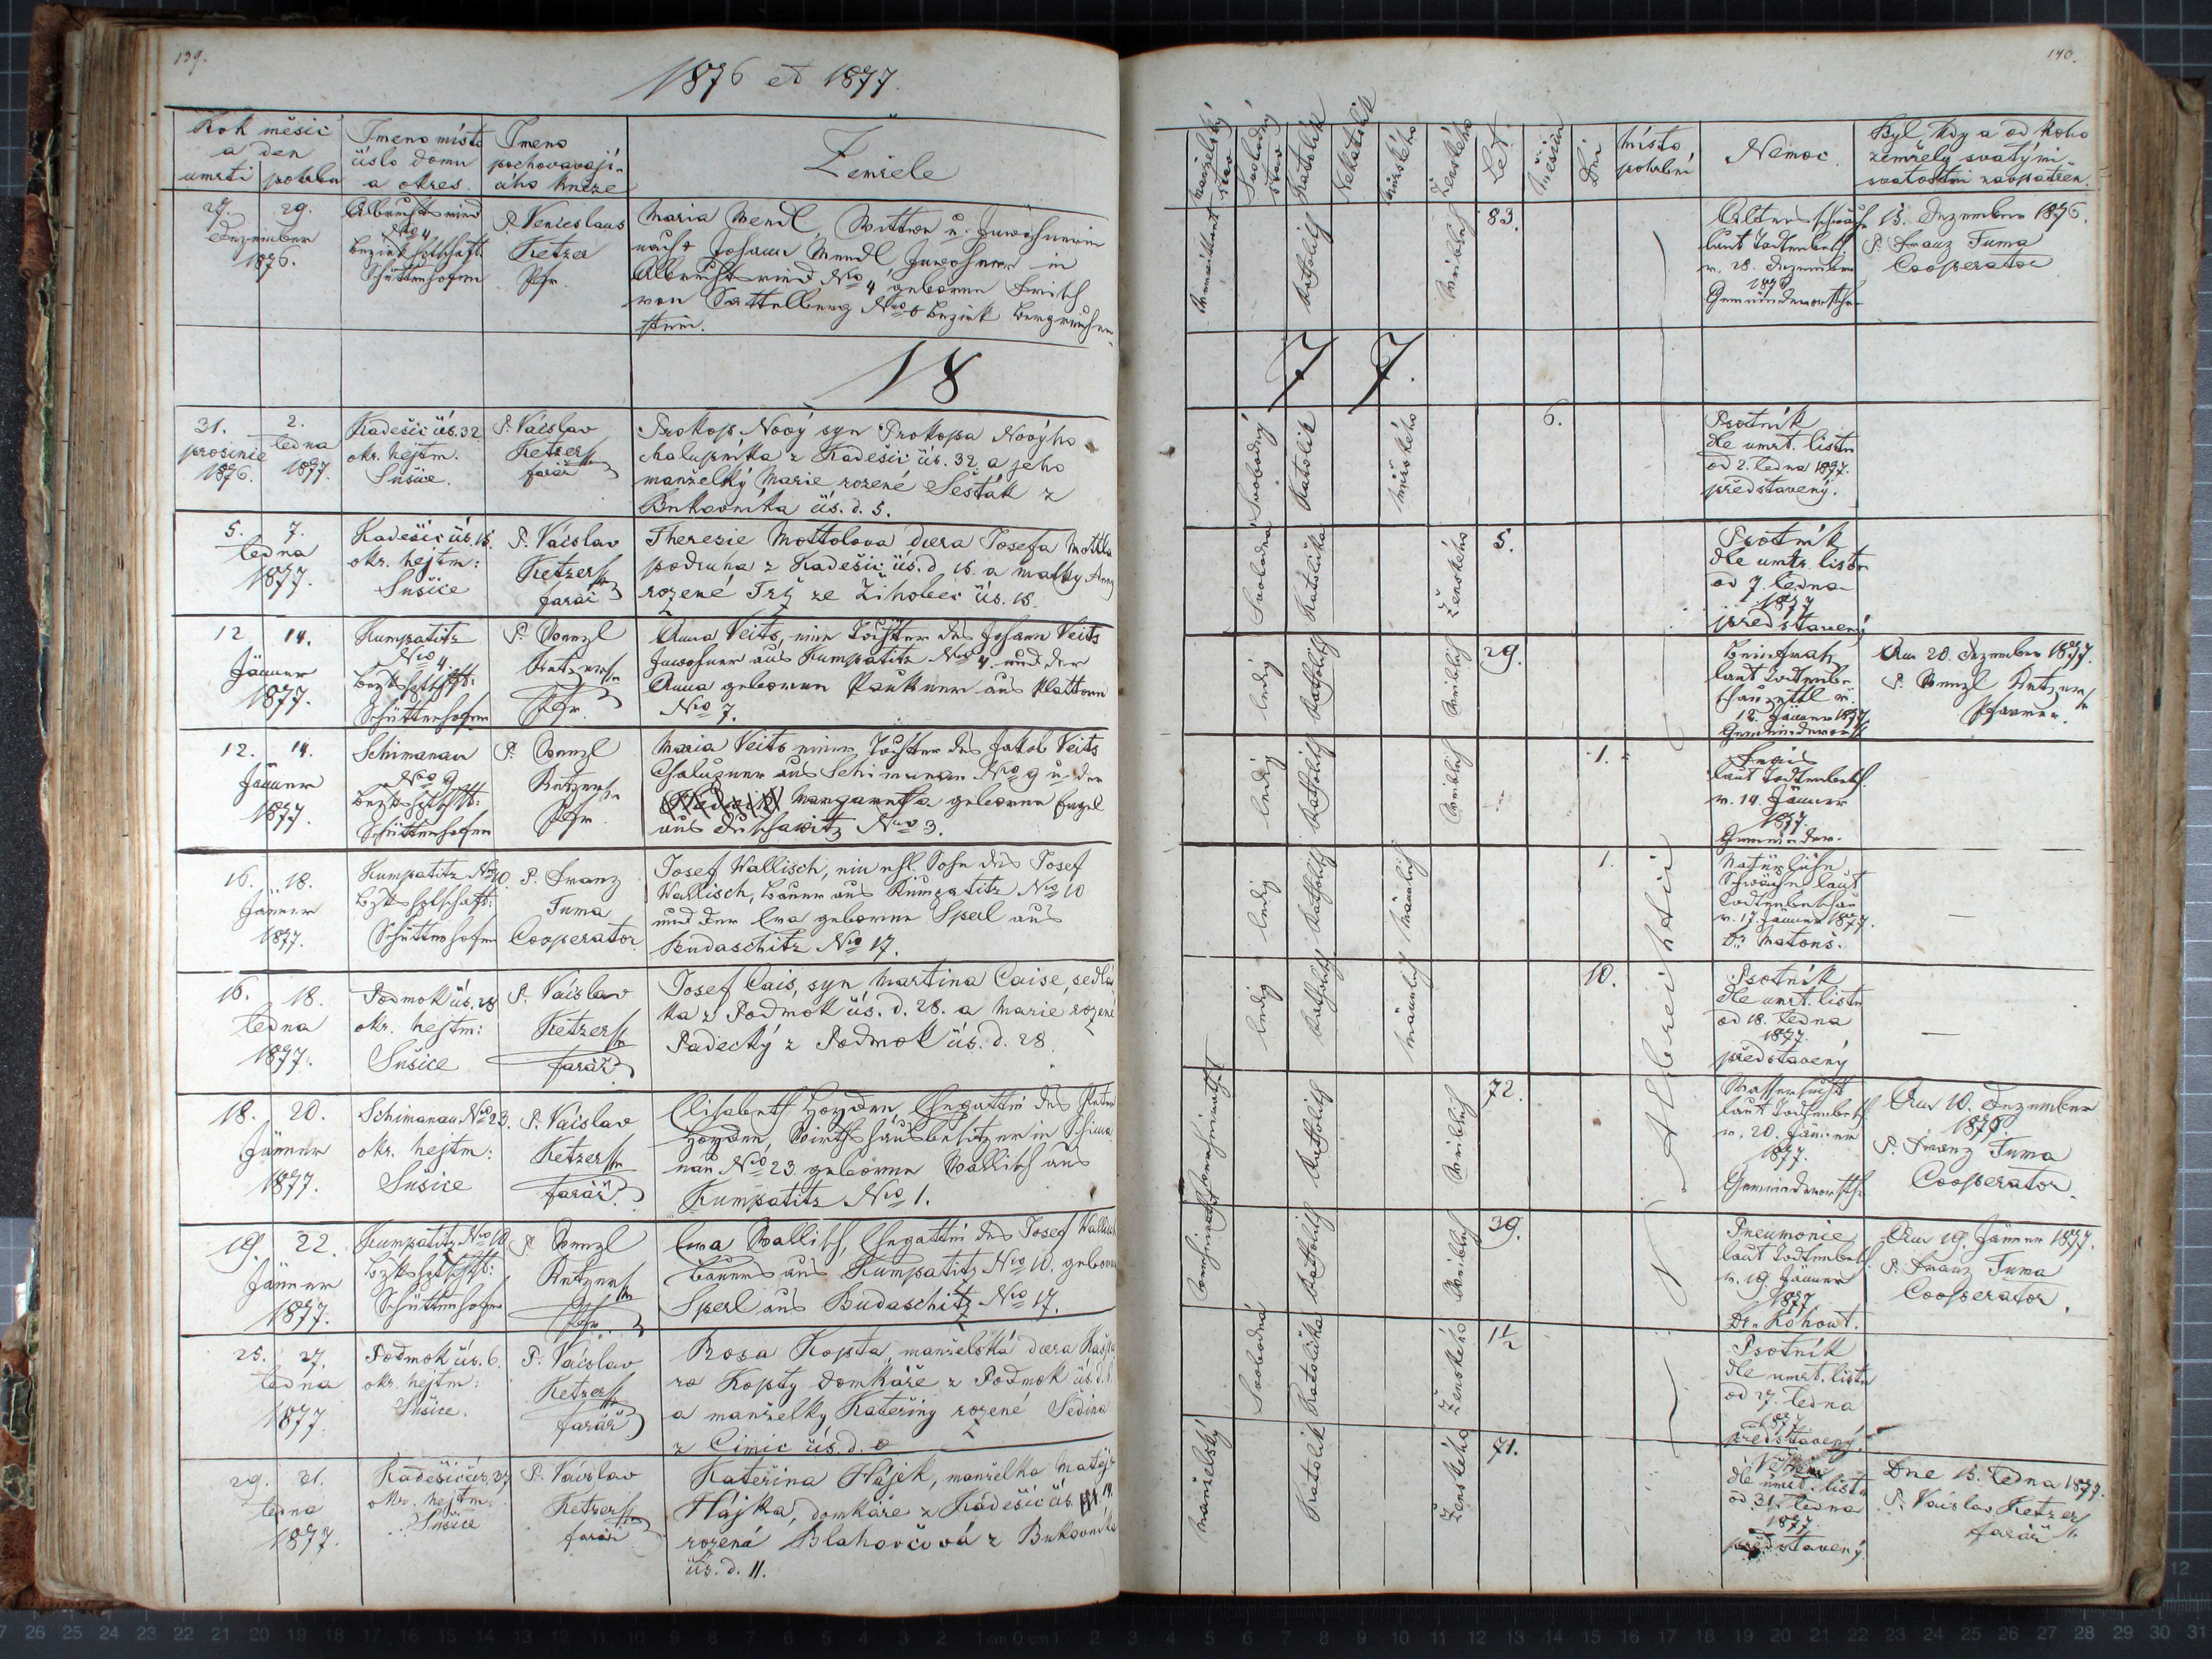 139.
1876 et 1877.
Rok měsíc
a den
umrtí pohřbu
Jmeno místa
číslo domu
a okres.
Jmeno
pochovavají-
cího kněze
Zemřele
27. 29.
Dezember
1876.
Albrechtsried
Nro 4
Bezirkshptschaft
Schüttenhofen
P. Venceslaus
Ketzer
Pfr.
Maria Mendl, Wittwe u. Inwohnerin
nach Johann Mendl Inwohner in
Albrechtsried Nro 4 geborene
von Sattelberg Nro 6 Bezirk Bergreichen-
stein.
18
31. 2.
prosince ledna
1876. 1877.
Kadešic čís. 32
okr. hejtm.
Sušice.
P. Václav
Ketzer
farář
Prokop Nový syn Prokopa Nového
chalupníka z Kadešic čís. 32 a jeho
manželky Marie rozené Šesták z
Bukovníka čís. d. 5.
5. 7.
ledna
1877.
Kadešic čís. 15.
okr. hejtm:
Sušice
P. Václav
Ketzer
farář
Theresie Mottolova dcera Josefa Mottla
podruha z Kadešic čís. d. 15. a matky Anny
rozené ze Žihobec čís. 18.
12 14.
Jänner
1877.
Kumpatitz
Nro 4.
Bezkshptschft:
Schüttenhofen
P. Wenzl
Ketzer
Pfr.
Anna Veits, eine Tochter des Johann Veits
Inwohner aus Kumpatitz Nro 4. und der
Anna geborene Paukner aus Plattorn
Nro 7.
12. 14.
Jänner
1877.
Schimanau
Nro 9
Bezkshptschft:
Schüttenhofen
P. Wenzl
Ketzer
Pfr.
Maria Veits eine Tochter des Jakob Veits
Chalupner aus Schimanau Nro 9 u. der
Margaretha geborene Engel
aus Nro 3.
16. 18.
Jänner
1877.
Kumpatitz Nro 10.
Bzkshptschaft:
Schüttenhofen
P. Franz
Tuma
Cooperator.
Josef Wallisch, ein ehl. Sohn des Josef
Wallisch, Bauer aus Kumpatitz Nro 10
und der Eva geborene Sperl aus
Budaschitz Nro 17.
16. 18.
ledna
1877.
Podmok čís. 28
okr. hejtm:
Sušice
P. Václav
Ketzer
farář
Josef Cais, syn Martina Caise, sedlá
ka z Podmok čís. d. 28. a Marie rozené
Padecký z Podmok čís. d. 28.
18. 20.
Jänner
1877.
Schimanau Nro 23.
okr. hejtm:
Sušice
P. Václav
Ketzer
farář
Elisabeth Hoyden, Ehegattin des Peter
Hoyden, Wirthshausbesitzer in Schima-
nau Nro 23 geborene Wallisch aus
Kumpatitz Nro 1.
19. 22.
Jänner
1877.
Kumpatitz Nro 10
Bzkshptschft:
Schüttenhofen
P. Wenzl
Ketzer
Pfr.
Eva Wallisch, Ehegattin des Josef Wallisch
Bauers aus Kumpatitz Nro 10. geborene
Sperl aus Budaschitz Nro 17.
25. 27.
ledna
1877.
Podmok čís. 6.
okr. hejtm:
Sušice.
P. Václav
Ketzer
farář
Rosa Kopta, manželská dcera Kašpa
ra Kopty domkáře z Podmok čís. d. 6.
a manželky Kateřiny rozené Šedina
z Čimic čís. d.
29. 31.
ledna
1877.
Kadešic čís. 37
okr. hejtm:
Sušice
P. Václav
Ketzer
farář
Kateřina Hájek, manželka Matěje
Hájka, domkáře z Kadešic čís. 14.
rozená Blahovčová z Bukovníka
čís. d. 11.
140.
Manželský stav
Svobodný stav
Katolík
Nekatolík
Mužského
Ženského
Let
Měsíců
Dní
Místo
pohřbení
Nemoc.
Byl kdy a od koho
zemřelý svatými
svatostmi zaopatřen.
Verwittwet
Katholisch
Weiblich
83.
Altersschwäche
laut Todtenbesch.
v. 28. Dezember
1876
Gemeindevorsth.
15. Dezember 1876.
P. Franz Tuma
Cooperator
7 7.
Svobodný
Katolík
Mužského
6.
Psotník
dle umrt. listu
od 2. ledna 1877.
představený.
Svobodná
Katolička
Ženského
5.
Psotník
dle umtr. listu
od 7. ledna
1877
představený
ledig
Katholisch
Weiblich
29.
Beinfraß
laut Todtenbe-
schauzettl v.
12. Jänner 1877
Gemeindevorst.
Am 20. Dezember 1877.
P. Wenzl Ketzer
Pfarrer.
ledig
Katholisch
Weiblich
1.
Frais
laut Todtenbesch.
v. 14. Jänner
1877.
Gemeindev.
ledig
Katholisch
Männlich
1.
Natürliche
Schwäche laut
Todtenbeschau
v. 17. Jänner 1877.
Dr. Matouš.
—
ledig
Katholisch
Männlich
10.
Psotník
dle umrt. listu
od 18. ledna
1877.
představený
—
Verheirathet
Katholisch
Weiblich
72.
Wassersucht
laut Todtenbesch.
v. 20. Jänner
1877.
Gemeindevorsth.
Am 10. Dezember
1876.
P. Franz Tuma
Cooperator.
Verheirathet
Katholisch
Weiblich
39.
Pneumonie
laut Todtenbesch.
v. 19. Jänner
1877
Dr. Kohout.
Am 19. Jänner 1877.
P. Franz Tuma
Cooperator.
Svobodná
Katolička
Ženského
1½
Psotník
dle umrt. listu
od 27. ledna
1877
představený.
Manželský
Katolík
Ženského
71.
dle úmrt. listu
od 31. ledna
1877
představený.
Dne 15. ledna 1877.
P. Václav Ketzer
farář